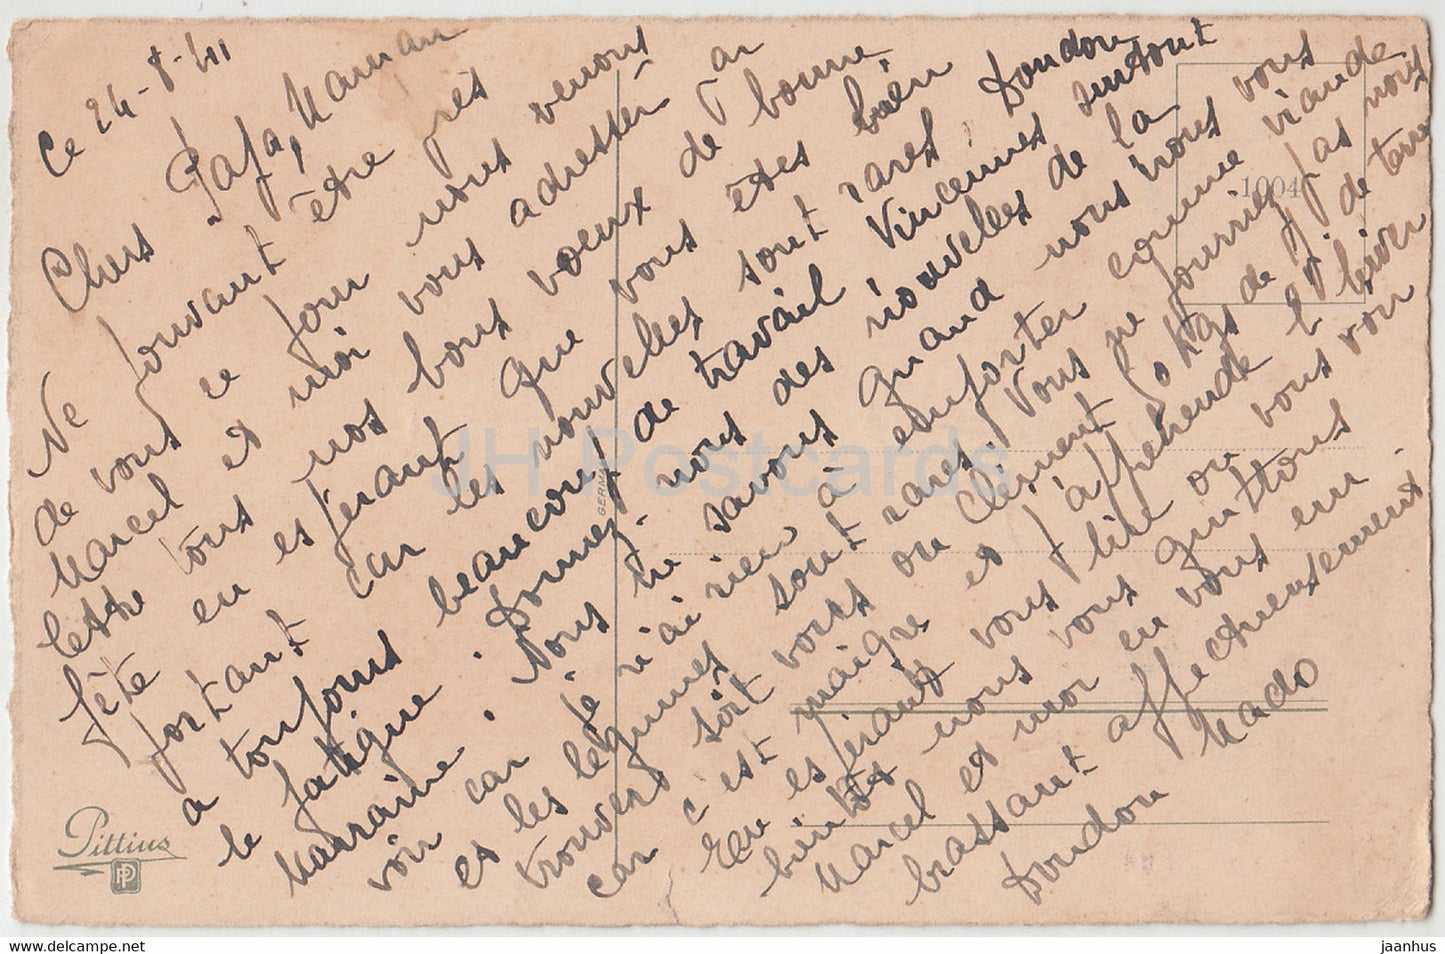 Ce 24-8-41
Chers Papa, Maman
Ne pouvant être près
de vous ce jour nous venons
Marcel et moi vous adresser par
lettre tous nos bons voeux de bonne
fête en espérant que vous êtes bien
portant car les nouvelles sont rares, Doudou
a toujours beaucoup de travail Vincennes surtout
le fatigue. Donnez nous des nouvelles de la
Marraine. Nous ne savons quand nous irons vous
voir car je n'ai rien à emporter comme viande
et les légumes sont rares, Vous ne pourriez pas nous
trouver soit vous ou Clément 50 kgs de p. de terre
car c'est maigre et j'appréhende l'hiver
En espérant vous lire ou vous voir
bientôt nous vous quittons
Marcel et moi en vous em-
brassant affectueusement.
Doudou Mado
Pittius
PP
GERMA
1004
JH Postcards
www.delcampe.net
jaanhus